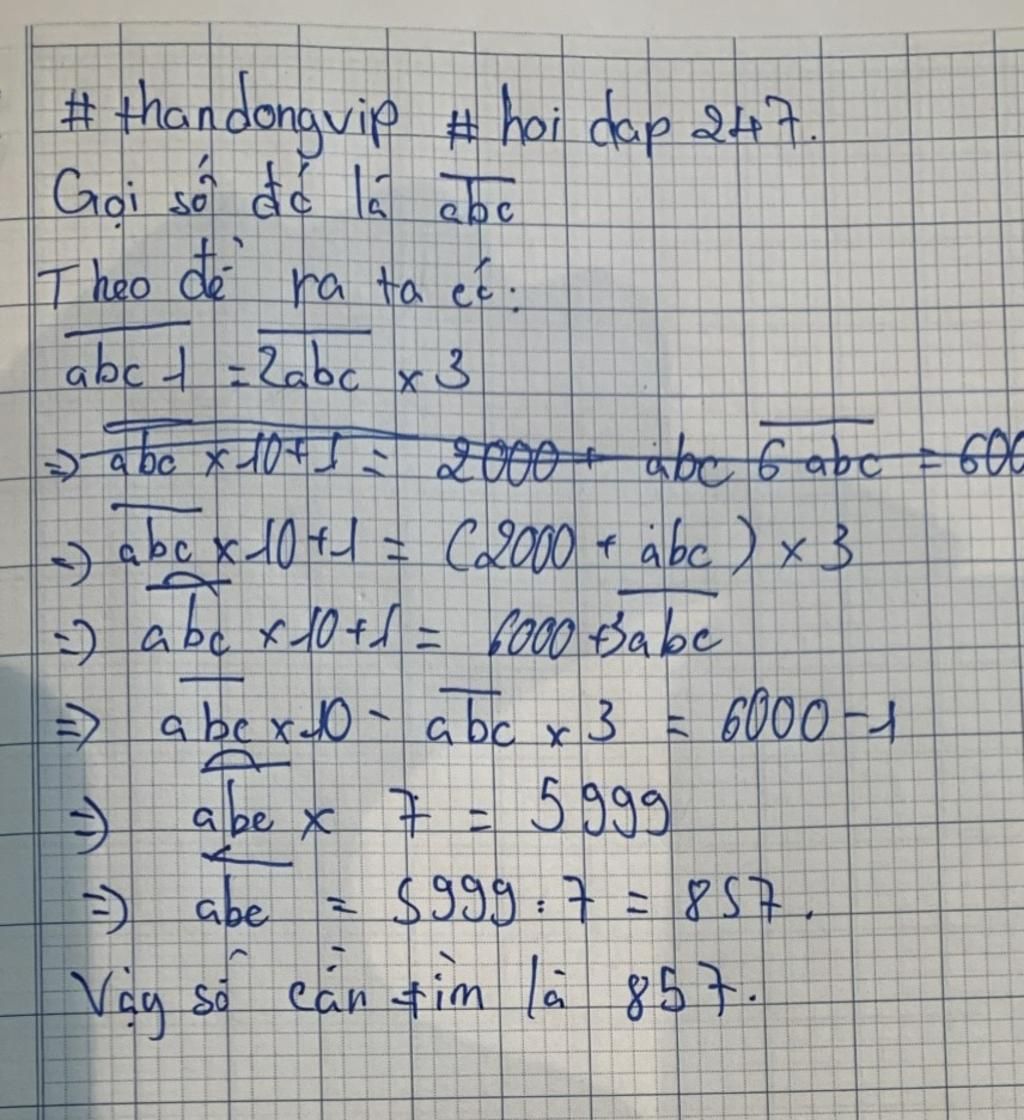 # thandongvip # hoi dap 247.
Gọi số đó là abc
Theo đề ra ta có:
abc1 = 2abc x 3
=> abc x 10+1 = 2000 + abc 6abc = 600
=> abc x 10+1 = (2000 + abc) x 3
=> abc x 10+1 = 6000 +3abc
=> abc x 10 - abc x 3 = 6000-1
=> abc x 7 = 5999
=> abc = 5999 : 7 = 857.
Vậy số cần tìm là 857.